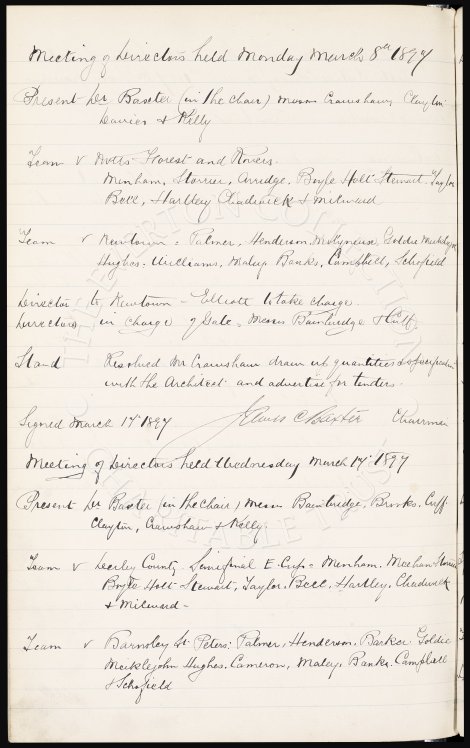 Meeting of Directors held Monday March 8th 1897
Present Dr Baxter (in the chair) Messrs Crawshaw, Clayton
Davies & Kelly
Team v Notts Forest and Rovers.
Menham, Storrier, Arridge, Boyle Holt Stewart Taylor
Bell, Hartley Chadwick & Milward
Team v Newtown = Palmer, Henderson, Molyneux, Goldie Meiklejohn
Hughes. Williams, Maley Banks, Campbell, Schofield
Director to Newtown - Elliott to take charge.
Directors in charge of Gate. Messrs Bainbridge & Cuff.
Stand Resolved Mr Crawshaw draw up quantities & specification
with the Architect and advertise for tenders.
Signed March 17th 1897 James C Baxter Chairman
Meeting of Directors held Wednesday March 17th 1897
Present Dr Baxter (in the chair) Messrs Bainbridge, Brooks. Cuff
Clayton, Crawshaw & Kelly.
Team v Derby County. Semifinal E. Cup = Menham. Meehan Storrier
Boyle Holt Stewart, Taylor. Bell, Hartley, Chadwick
& Milward -
Team v Barnsley St Peters: Palmer, Henderson. Barker. Goldie
Meiklejohn Hughes. Cameron, Maley. Banks. Campbell
& Schofield